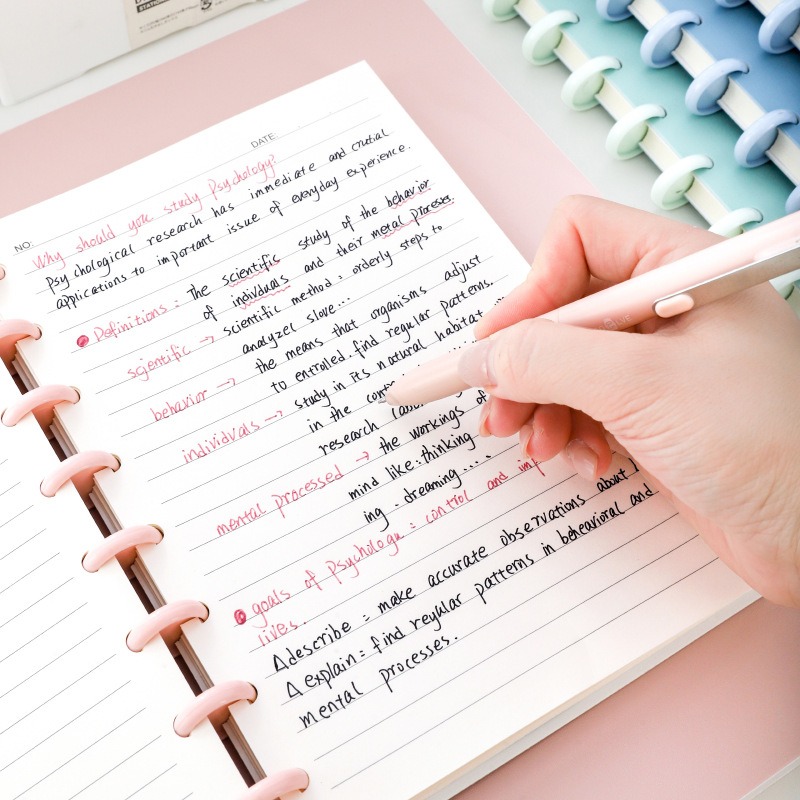 DATE:
NO:
Why should you study Psychology?
Psychological research has immediate and crucial
applications to important issue of everyday experience.
Definitions : The scientific study of the behavior
of indivduals and their metal processes.
scientific → scientific method : orderly steps to
analyzel slove...
behavior → the means that organisms adjust
to entrolled. find regular patterns.
individuals → study in its natural habitat
in the
research
mental processed → the workings of
mind like : thinking
ing . dreaming....
goals of Psychologu : control and
lives.
Δdescribe : make accurate observations about
Δ explain : find reyular patterns in beheavioral and
mental processes.